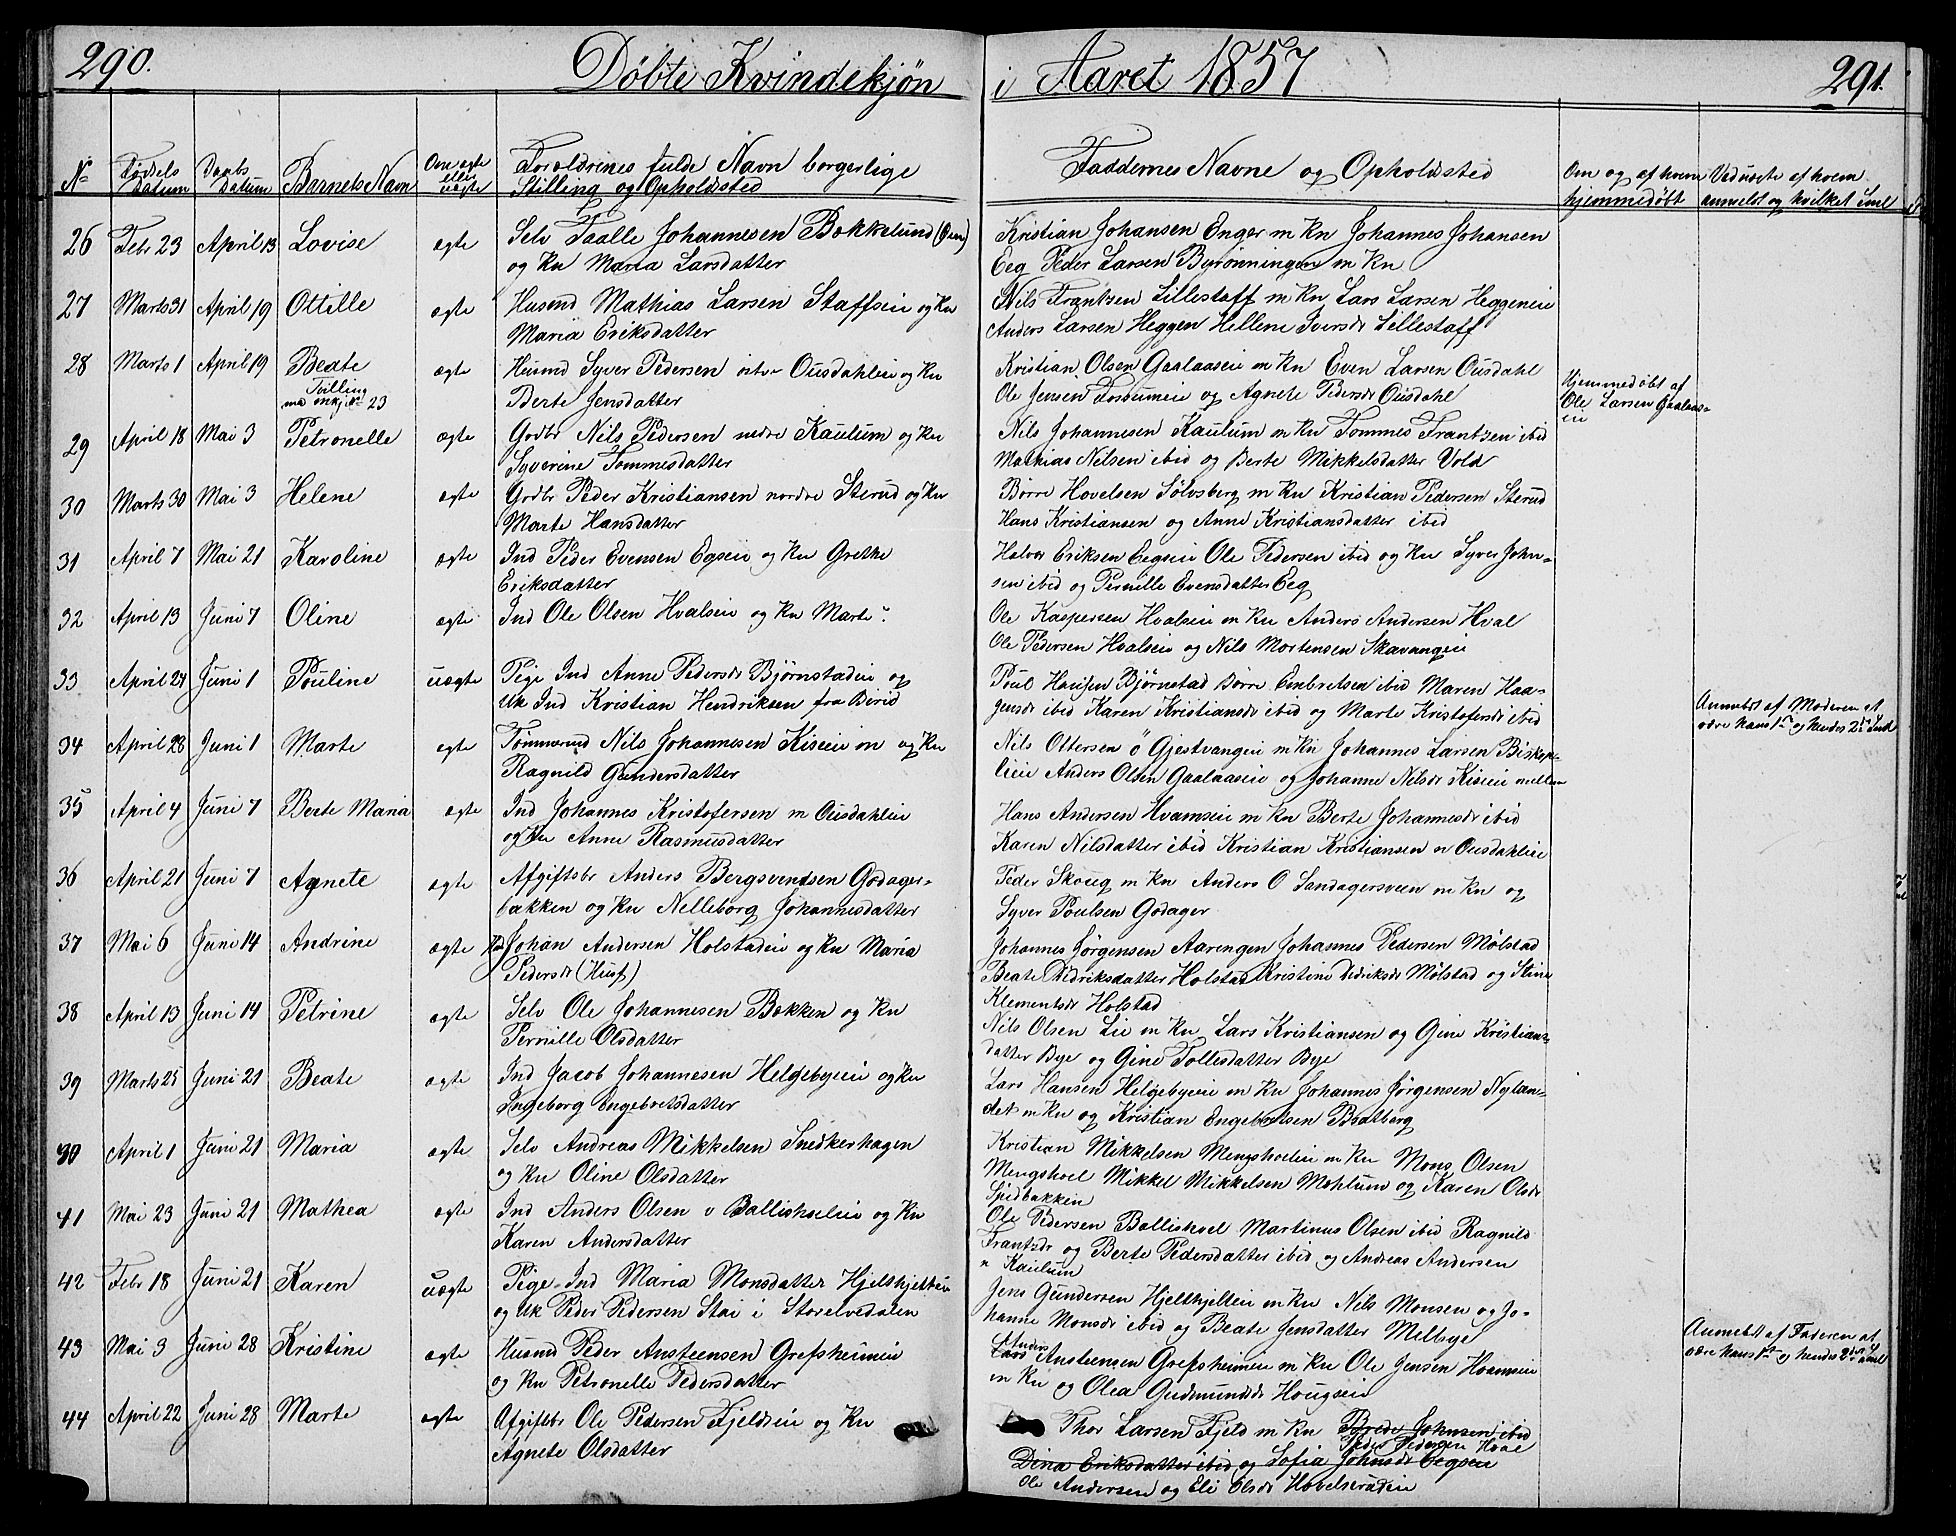 290.
Døbte Kvindekjøn
i Aaret 1857
291.
No
Fødsels Datum
Daabs Datum
Barnets Navn
Om ægte eller uægte
Forældrenes fulde Navn borgerlige
Stilling og Opholdssted
Faddernes Navne og Opholdssted
Om og af hvem
hjemmedøbt
af hvem
anmeldt og hvilket Leil
26 Febr 23 April 13 Lovise ægte Selv Taalle Johannesen Bekkelund (Øen)
og Kn Maria Larsdatter
Kristian Johansen Enger m Kn Johannes Johansen
Eeg Peder Larsen Byrønningen m Kn
27 Marts 31 April 19 Ottille ægte Husmd Mathias Larsen Staffseie og Kn
Maria Eriksdatter
Nils Frantzen Lillestaff m Kn Lars Larsen Heggeneie
Anders Larsen Heggen Hellene Iversdr Lillestaff
28 Marts 1 April 19 Beate ægte Husmd Syver Pedersen Ousdahleie og Kn
Tvilling
23
Berte Jensdatter
Kristian Olsen Gaalaaseie m Kn Even Larsen Ousdahl
Ole Jensen Fossumeie og Agnete Pedersdr Ousdahl
Hjemmedøbt af
Ole Larsen Gaalaas-
eie
29 April 18 Mai 3 Petronelle ægte Grdbr Nils Pedersen nedre Kaulum og Kn
Syverine Tommesdatter
Nils Johannesen Kaulum m Kn Tommes Frantzen ibid
Mathias Nilsen ibid og Berte Mikkelsdatter Vold
30 Marts 30 Mai 3 Helene ægte Grdbr Peder Kristiansen nordre Sterud og Kn
Marte Hansdatter
Børre Hovelsen Sølvsberg m Kn Kristian Pedersen Sterud
Hans Kristiansen og Anne Kristiansdatter ibid
31 April 7 Mai 21 Karoline ægte Ind Peder Evensen Egseie og Kn Grethe
Eriksdatter
Halvor Eriksen Eegseie Ole Pedersen ibid og Kn Syver John-
sen ibid og Pernille Evensdatter Eeg
32 April 13 Juni 7 Oline ægte Ind Ole Olsen Hvalseie og Kn Marte ?
Ole Kaspersen Hvalseie m Kn Anders Andersen Hval
Ole Pedersen Hvalseie og Nils Mortensen Skavangeie
33 April 24 Juni 1 Pouline uægte Pige Ind Anne Pedersdr Bjørnstadeie og
Uk Ind Kristian Hendriksen fra Birid
Poul Hansen Bjørnstad Børre Embretsen ibid Maren Haa-
gensdr ibid Karen Kristiansdr ibid og Marte Kristofersdr ibid
Anmeldt af Moderen at
være hans 1ste og hendes 2det Leil
34 April 28 Juni 1 Marte ægte Tømmermd Nils Johannesen Kiseie m og Kn
Ragnild Gundersdatter
Nils Ottersen ö Gjestvangeie m Kn Johannes Larsen Biskop-
lieie Anders Olsen Gaalaaseie og Johanne Nelsdr Kiseie mellem
35 April 4 Juni 7 Berte Maria ægte Ind Johannes Kristofersen m Ousdahleie
og Kn Anne Rasmusdatter
Hans Andersen Hvamseie m Kn Berte Johannesdr ibid
Karen Nilsdatter ibid Kristian Kristiansen n Ousdahleie
36 April 21 Juni 7 Agnete ægte Afgiftsbr Anders Bergsvendsen Godager-
bakken og Kn Nelleborg Johannesdatter
Peder Skoug m Kn Anders O Sandagersveen m Kn og
Syver Poulsen Godager
37 Mai 6 Juni 14 Andrine ægte Ind Johan Andersen Holstadeie og Kn Maria
Pedersdr (Husf)
Johannes Jørgensen Aarengen Johannes Pedersen Mølstad
Beate Didriksdatter Holstad Kristine Didriksdr Mølstad og Stine
Klementsdr Holstad
38 April 13 Juni 14 Petrine ægte Selv Ole Johannesen Bekken og Kn
Pernille Olsdatter
Nils Olsen Lie m Kn Lars Kristiansen og Gine Kristians-
datter Bye og Gine Tollesdatter Bye
39 Marts 25 Juni 21 Beate ægte Ind Jacob Johannesen Helgebyeie og Kn
Ingeborg Engebretsdatter
Lars Hansen Helgebyeie m Kn Johannes Jørgensen Nylan-
det m Kn og Kristian Engebretsen Bratberg
40 April 1 Juni 21 Maria ægte Selv Andreas Mikkelsen Snedkerhagen
og Kn Oline Olsdatter
Kristian Mikkelsen Mengshoeleie m Kn Mons Olsen
Mengshoel Mikkel Mikkelsen Mæhlum og Karen Olsdr
Spidbakken
41 Mai 23 Juni 21 Mathea ægte Ind Anders Olsen v Ballishoeleie og Kn
Karen Andersdatter
Ole Pedersen Ballishoel Martinus Olsen ibid Ragnild
Frantzdr og Berte Pedersdatter ibid og Andreas Andersen
n Kaulum
42 Febr 18 Juni 21 Karen uægte Pige Ind Maria Monsdatter Hjelthjelteie
og Uk Peder Pedersen Stai i Storelvedalen
Jens Gundersen Hjelthjelteie m Kn Nils Monsen og Jo-
hanne Monsdr ibid og Beate Jensdatter Melbye
43 Mai 3 Juni 28 Kristine ægte Husmd Peder Austeensen Grefsheimeie
og Kn Petronelle Pedersdatter
Anders
Lars Austeensen Grefsheimeie m Kn Ole Jensen Hvamseie
m Kn og Olea Gudmundsdr Hougseie
Anmeldt af Faderen at
være hans 1ste og hendes 2det Leil
44 April 22 Juni 28 Marte ægte Afgiftsbr Ole Pedersen Fjeldseie og Kn
Agnete Olsdatter
Thor Larsen Fjeld m Kn Brede Johnsen ibid
Peder Pedersen Hval
Dina Eriksdatter ibid og Sofia Johnsdr Eegseie
Ole Andersen og Eli Olsdr Hovelsrudeie